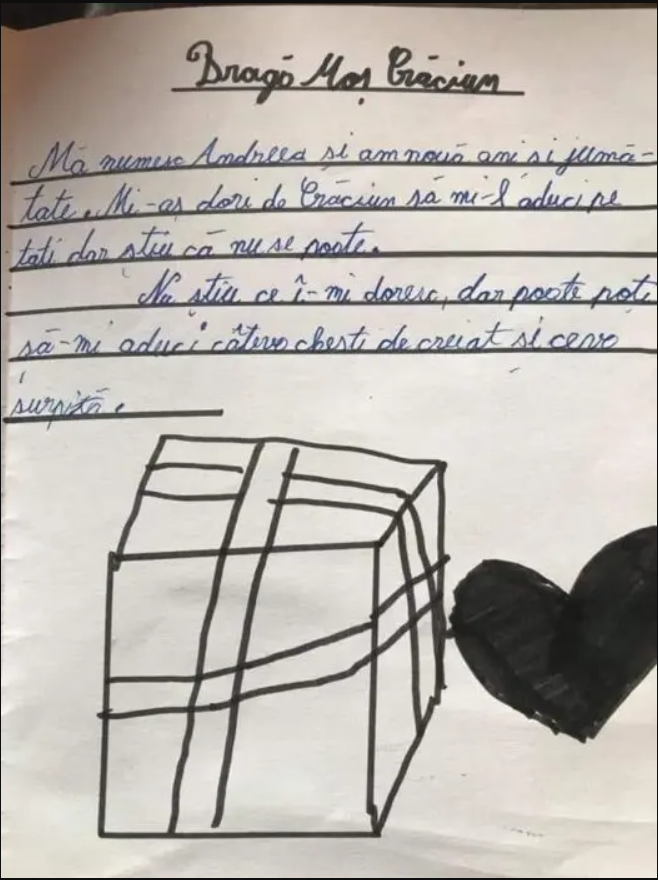 Dragă Moș Crăciun
Mă numesc Andreea și am nouă ani si jumă-
tate. Mi-aș dori de Crăciun să mi-l aduci pe
tati dar stiu că nu se poate.
Nu stiu ce î-mi doresc, dar poate poti
să-mi aduci câteva chesti de creiat si ceva
surpiză.